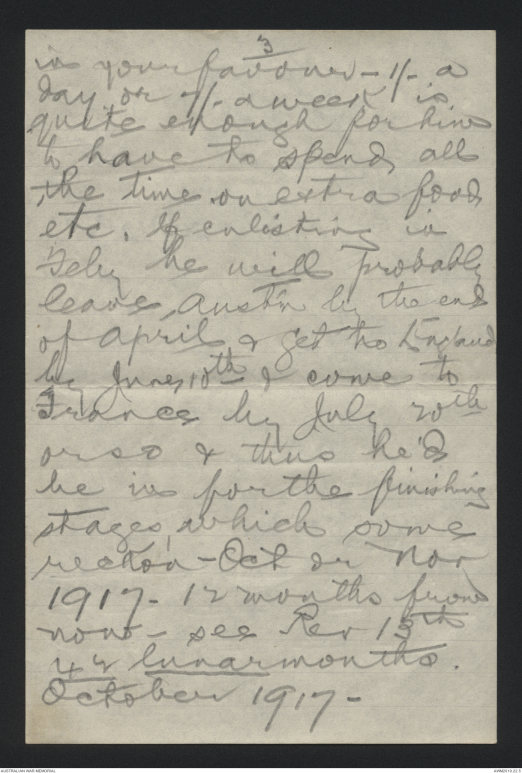 3
in your favour - 1/- a
day or 7/- a week is
quite enough for him
to have to spend, all
the time on extra food
etc. If enlisting in
Feby he will probably
leave Aust'n by the end
of April, & get to England
by June 10th & come to
France by July 20th
or so & thus he'd
be in for the finishing
stages, which some
reckon - Oct or Nov
1917 - 12 months from
now - see Rev 13th
42 lunar months.
October 1917 -
AUSTRALIAN WAR MEMORIAL